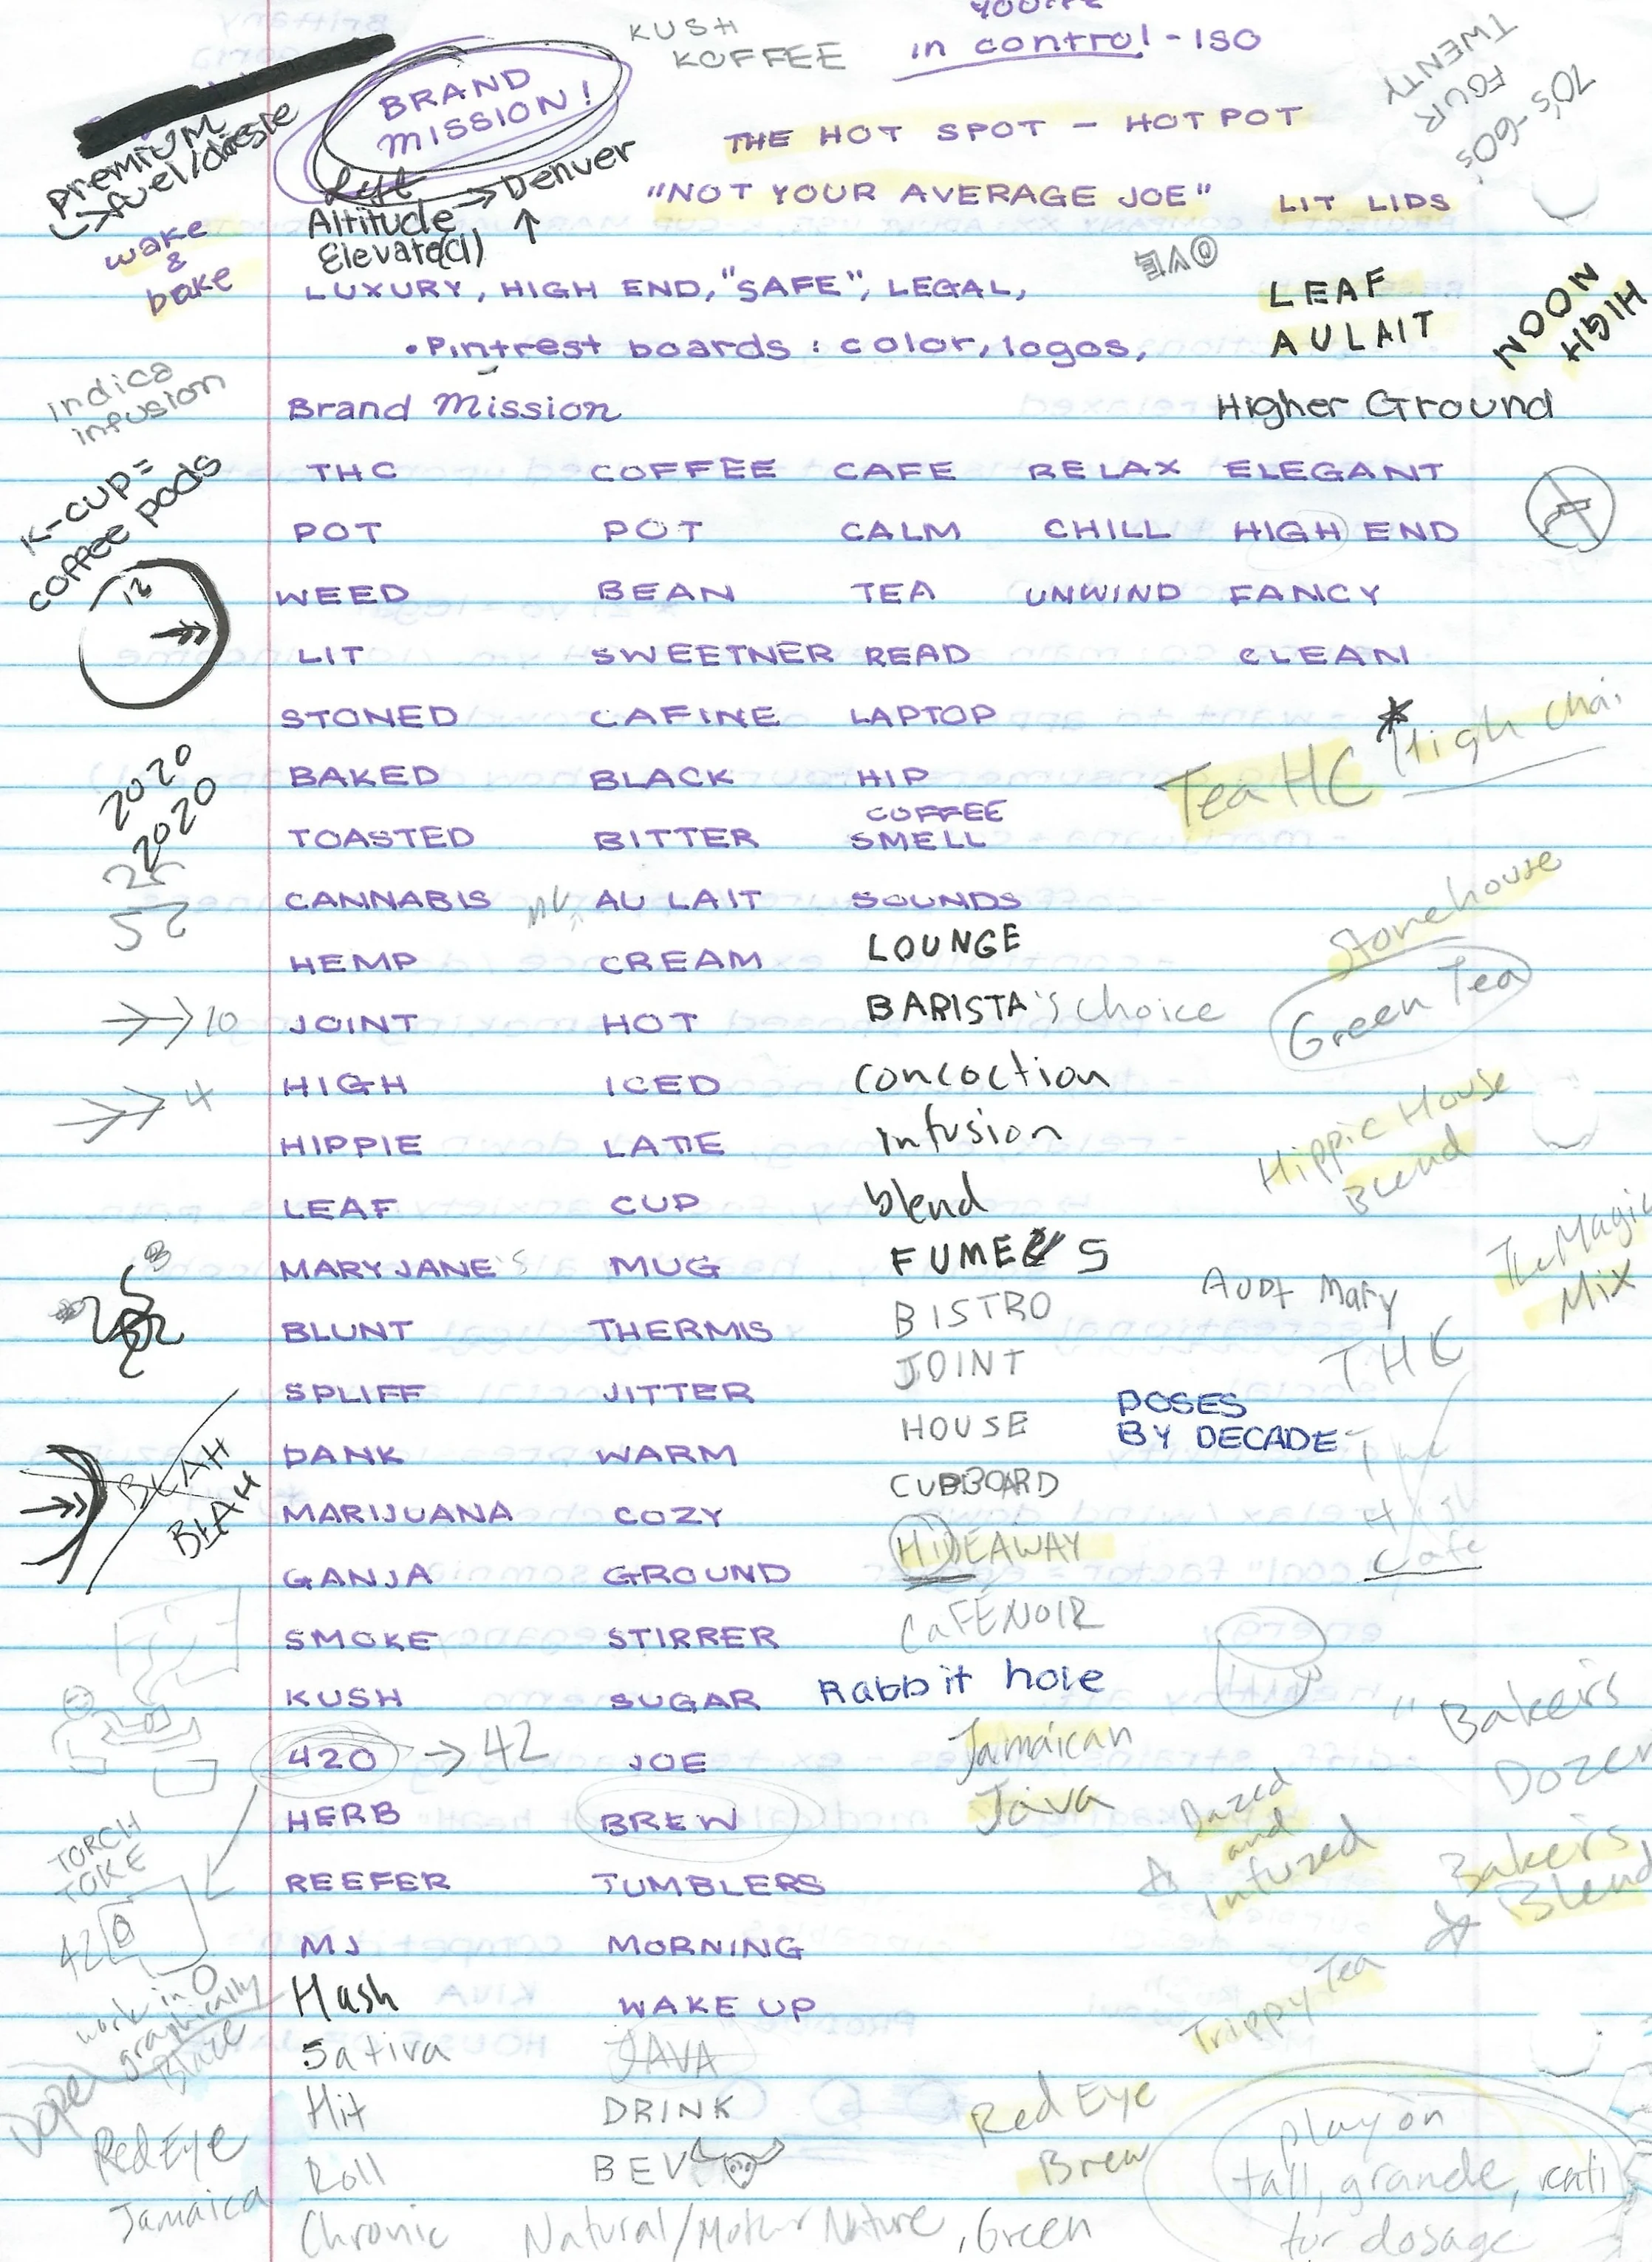 KUSH
KOFFEE
YOU'RE
in control - ISO
TWENTY
FOUR
70's-60s
BRAND
MISSION!
premium
fuel/
THE HOT SPOT - HOT POT
Denver
Altitude
Elevate(d)
"NOT YOUR AVERAGE JOE"
LIT LIDS
wake
&
bake
LUXURY, HIGH END, "SAFE", LEGAL,
LEAF
AU LAIT
NOON
HIGH
• Pintrest boards: color, logos,
indica
infusion
Brand Mission
Higher Ground
K-CUP=
coffee pods
THC COFFEE CAFE RELAX ELEGANT
POT POT CALM CHILL HIGH END
12
WEED BEAN TEA UNWIND FANCY
LIT SWEETNER READ CLEAN
STONED CAFINE LAPTOP
High Chai
TeaHC
2020
2020
BAKED BLACK HIP
COFFEE
TOASTED BITTER SMELL
CANNABIS AU LAIT SOUNDS
Stonehouse
HEMP CREAM LOUNGE
Green Tea
10
JOINT HOT BARISTA's choice
4
HIGH ICED concoction
HIPPIE LATTE infusion
Hippie House
Blend
LEAF CUP blend
MARY JANE'S MUG FUMES
The Magic
Mix
BLUNT THERMIS BISTRO
Aunt Mary
THC
SPLIFF JITTER JOINT
DOSES
BY DECADE
DANK WARM HOUSE
BLAH
BLAH
MARIJUANA COZY CUPBOARD
GANJA GROUND HIDEAWAY
Cafe
SMOKE STIRRER CaFÉNOIR
KUSH SUGAR Rabbit hole
"Bakers
Dozen
420 → 42 JOE Jamaican
Java
HERB BREW
Dazed
and
infuzed
Bakers
Blend
TORCH
TOKE
REEFER TUMBLERS
42
MJ MORNING
work in O
graphically
Blaze
Hash WAKE UP
Trippy Tea
Sativa JAVA
Dope
Hit DRINK
Red Eye
Brew
Red Eye
Roll BEV
play on
tall, grande,
for dosage
Jamaica
Chronic Natural/Mother Nature, Green